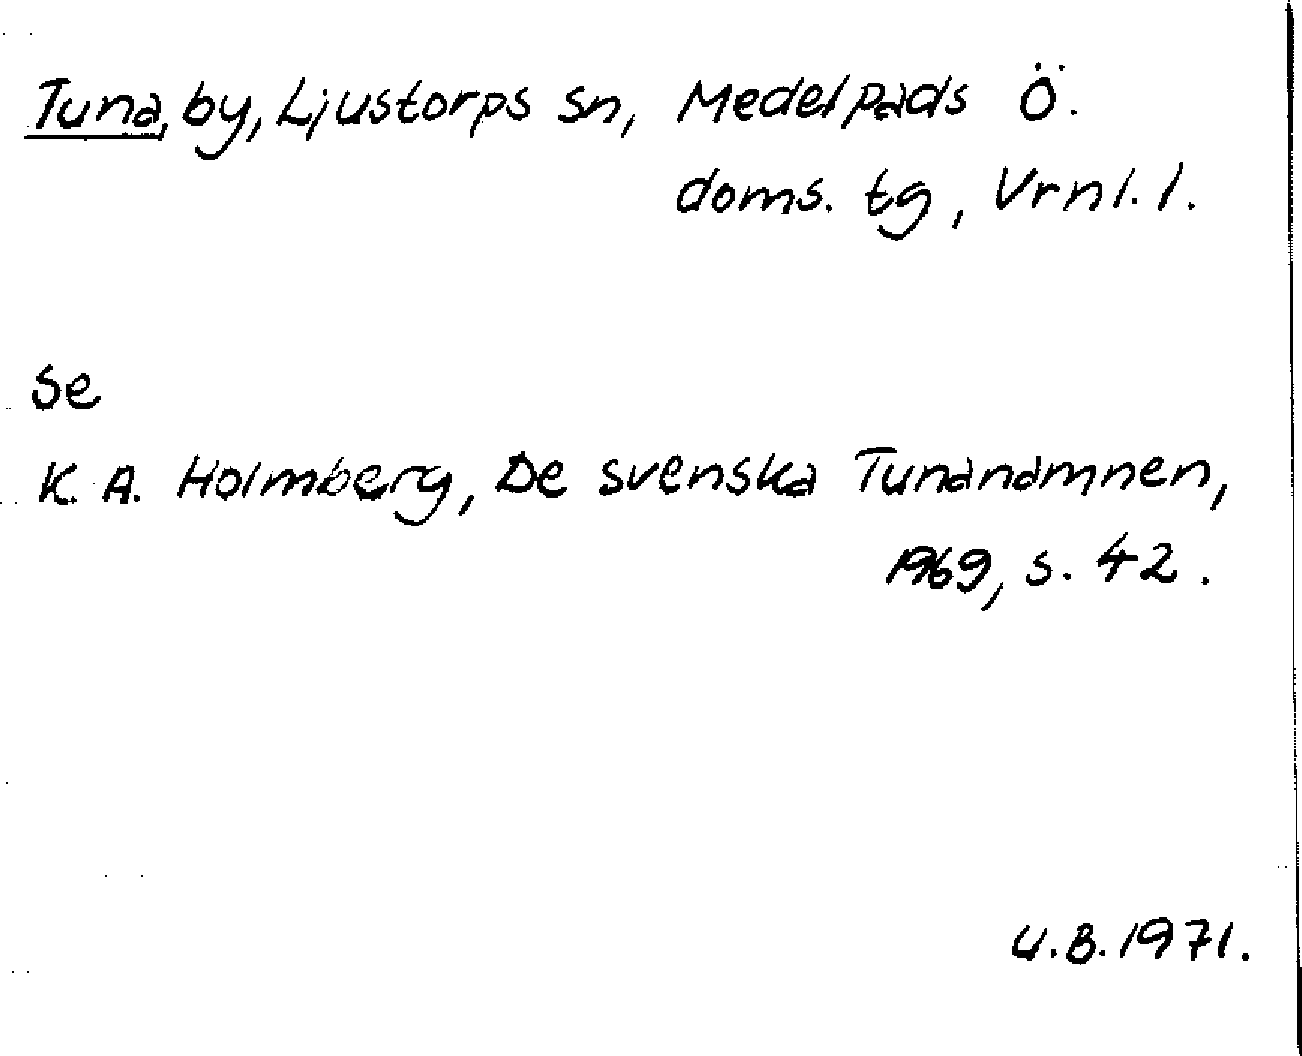 Tuna, by, Ljustorps sn, Medelpads Ö.
doms. tg, Vrnl. l.
se
K. A. Holmberg, De svenska Tunanamnen,
1969, s. 42.
U.B. 1971.